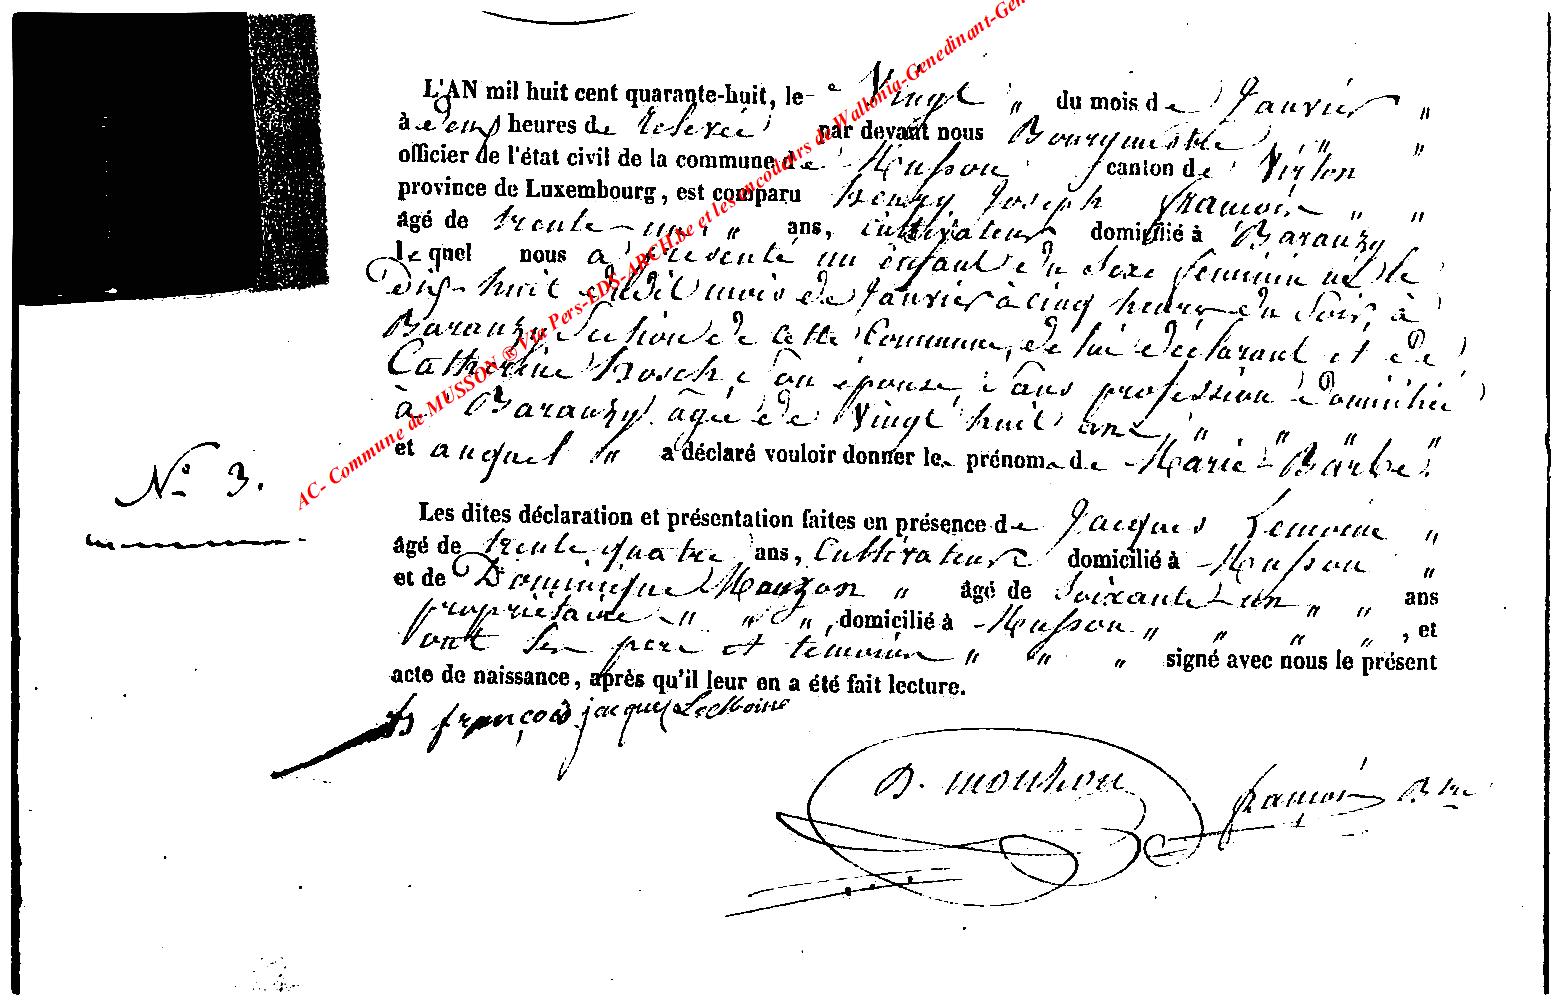 L'AN mil huit cent quarante-huit, le Vingt " du mois de Janvier "
à deux heures de relevée par devant nous Bourgmestre " "
officier de l'état civil de la commune de Musson canton de Virton
province de Luxembourg, est comparu henry Joseph françois " "
âgé de trente-un " ans, cultivateur domicilié à Baranzy
lequel nous a présenté un enfant du sexe féminin né le
Dix-huit dudit mois de Janvier à cinq heures du soir, à
Baranzy Section de cette Commune, de lui déclarant et de
Catherine hosch, son épouse, sans profession domiciliée
à Baranzy âgée de Vingt huit ans " " " "
et auquel " a déclaré vouloir donner les prénoms de Marie-Barbe "
N° 3.
Les dites déclaration et présentation faites en présence de Jacques Lemoine "
âgé de trente quatre ans, Cultivateur domicilié à Musson "
et de Dominique Mouzon " âgé de soixante-un " " ans
propriétaire " " " , domicilié à Musson " " " " , et
ont les père et témoins " " " signé avec nous le présent
acte de naissance, après qu'il leur en a été fait lecture.
h j françois jacques LeMoine
D. mouzon françois Bre
AC- Commune de MUSSON ® Via Pers-EDS-ARCH.be et les encodeurs de Wallonia-Genedinant-Gen